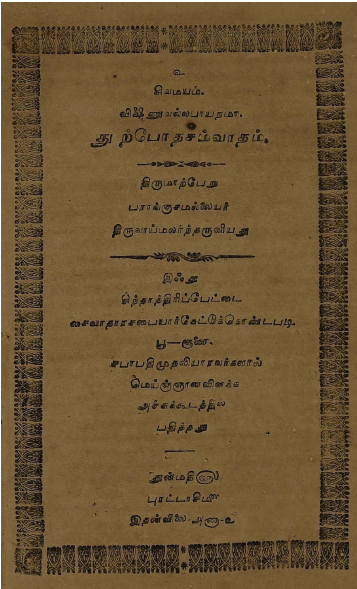 உ
சிவமயம்.
விஷ்ணுவல்லபாயநமா.
துற்போதசம்வாதம்.
திருமாற்பேறு
பராங்குசமல்லையர்
திருவாய்மலர்ந்தருளியது
இஃது
சிந்தாத்திரிப்பேட்டை
சைவாதாரசபையார்கேட்டுக்கொண்டபடி
பூ—ணை.
சபாபதிமுதலியாரவர்களால்
மெய்ஞ்ஞானவிளக்க
அச்சுக்கூடத்தில்
பதித்தது
துன்மதி௵
புரட்டாசி௴
இதன்விலை-அணா-உ